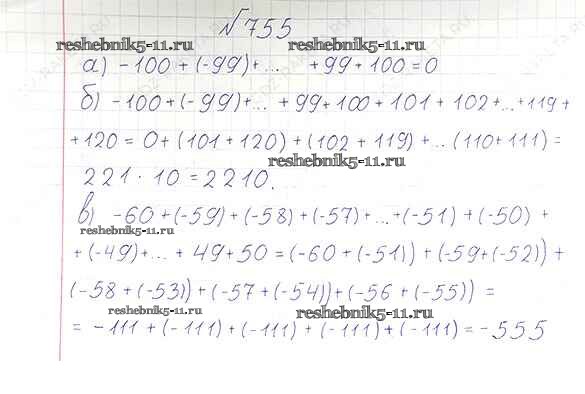 №755
reshebnik5-11.ru
а) -100 + (-99) + ... + 99 + 100 = 0
б) -100 + (-99) + ... + 99 + 100 + 101 + 102 + ... + 119 +
+ 120 = 0 + (101 + 120) + (102 + 119) + ... (110 + 111) =
reshebnik5-11.ru
221 · 10 = 2210.
в) -60 + (-59) + (-58) + (-57) + ... + (-51) + (-50) +
reshebnik5-11.ru
+ (-49) + ... + 49 + 50 = (-60 + (-51)) + (-59 + (-52)) +
(-58 + (-53)) + (-57 + (-54)) + (-56 + (-55)) =
reshebnik5-11.ru reshebnik5-11.ru
= -111 + (-111) + (-111) + (-111) + (-111) = -555